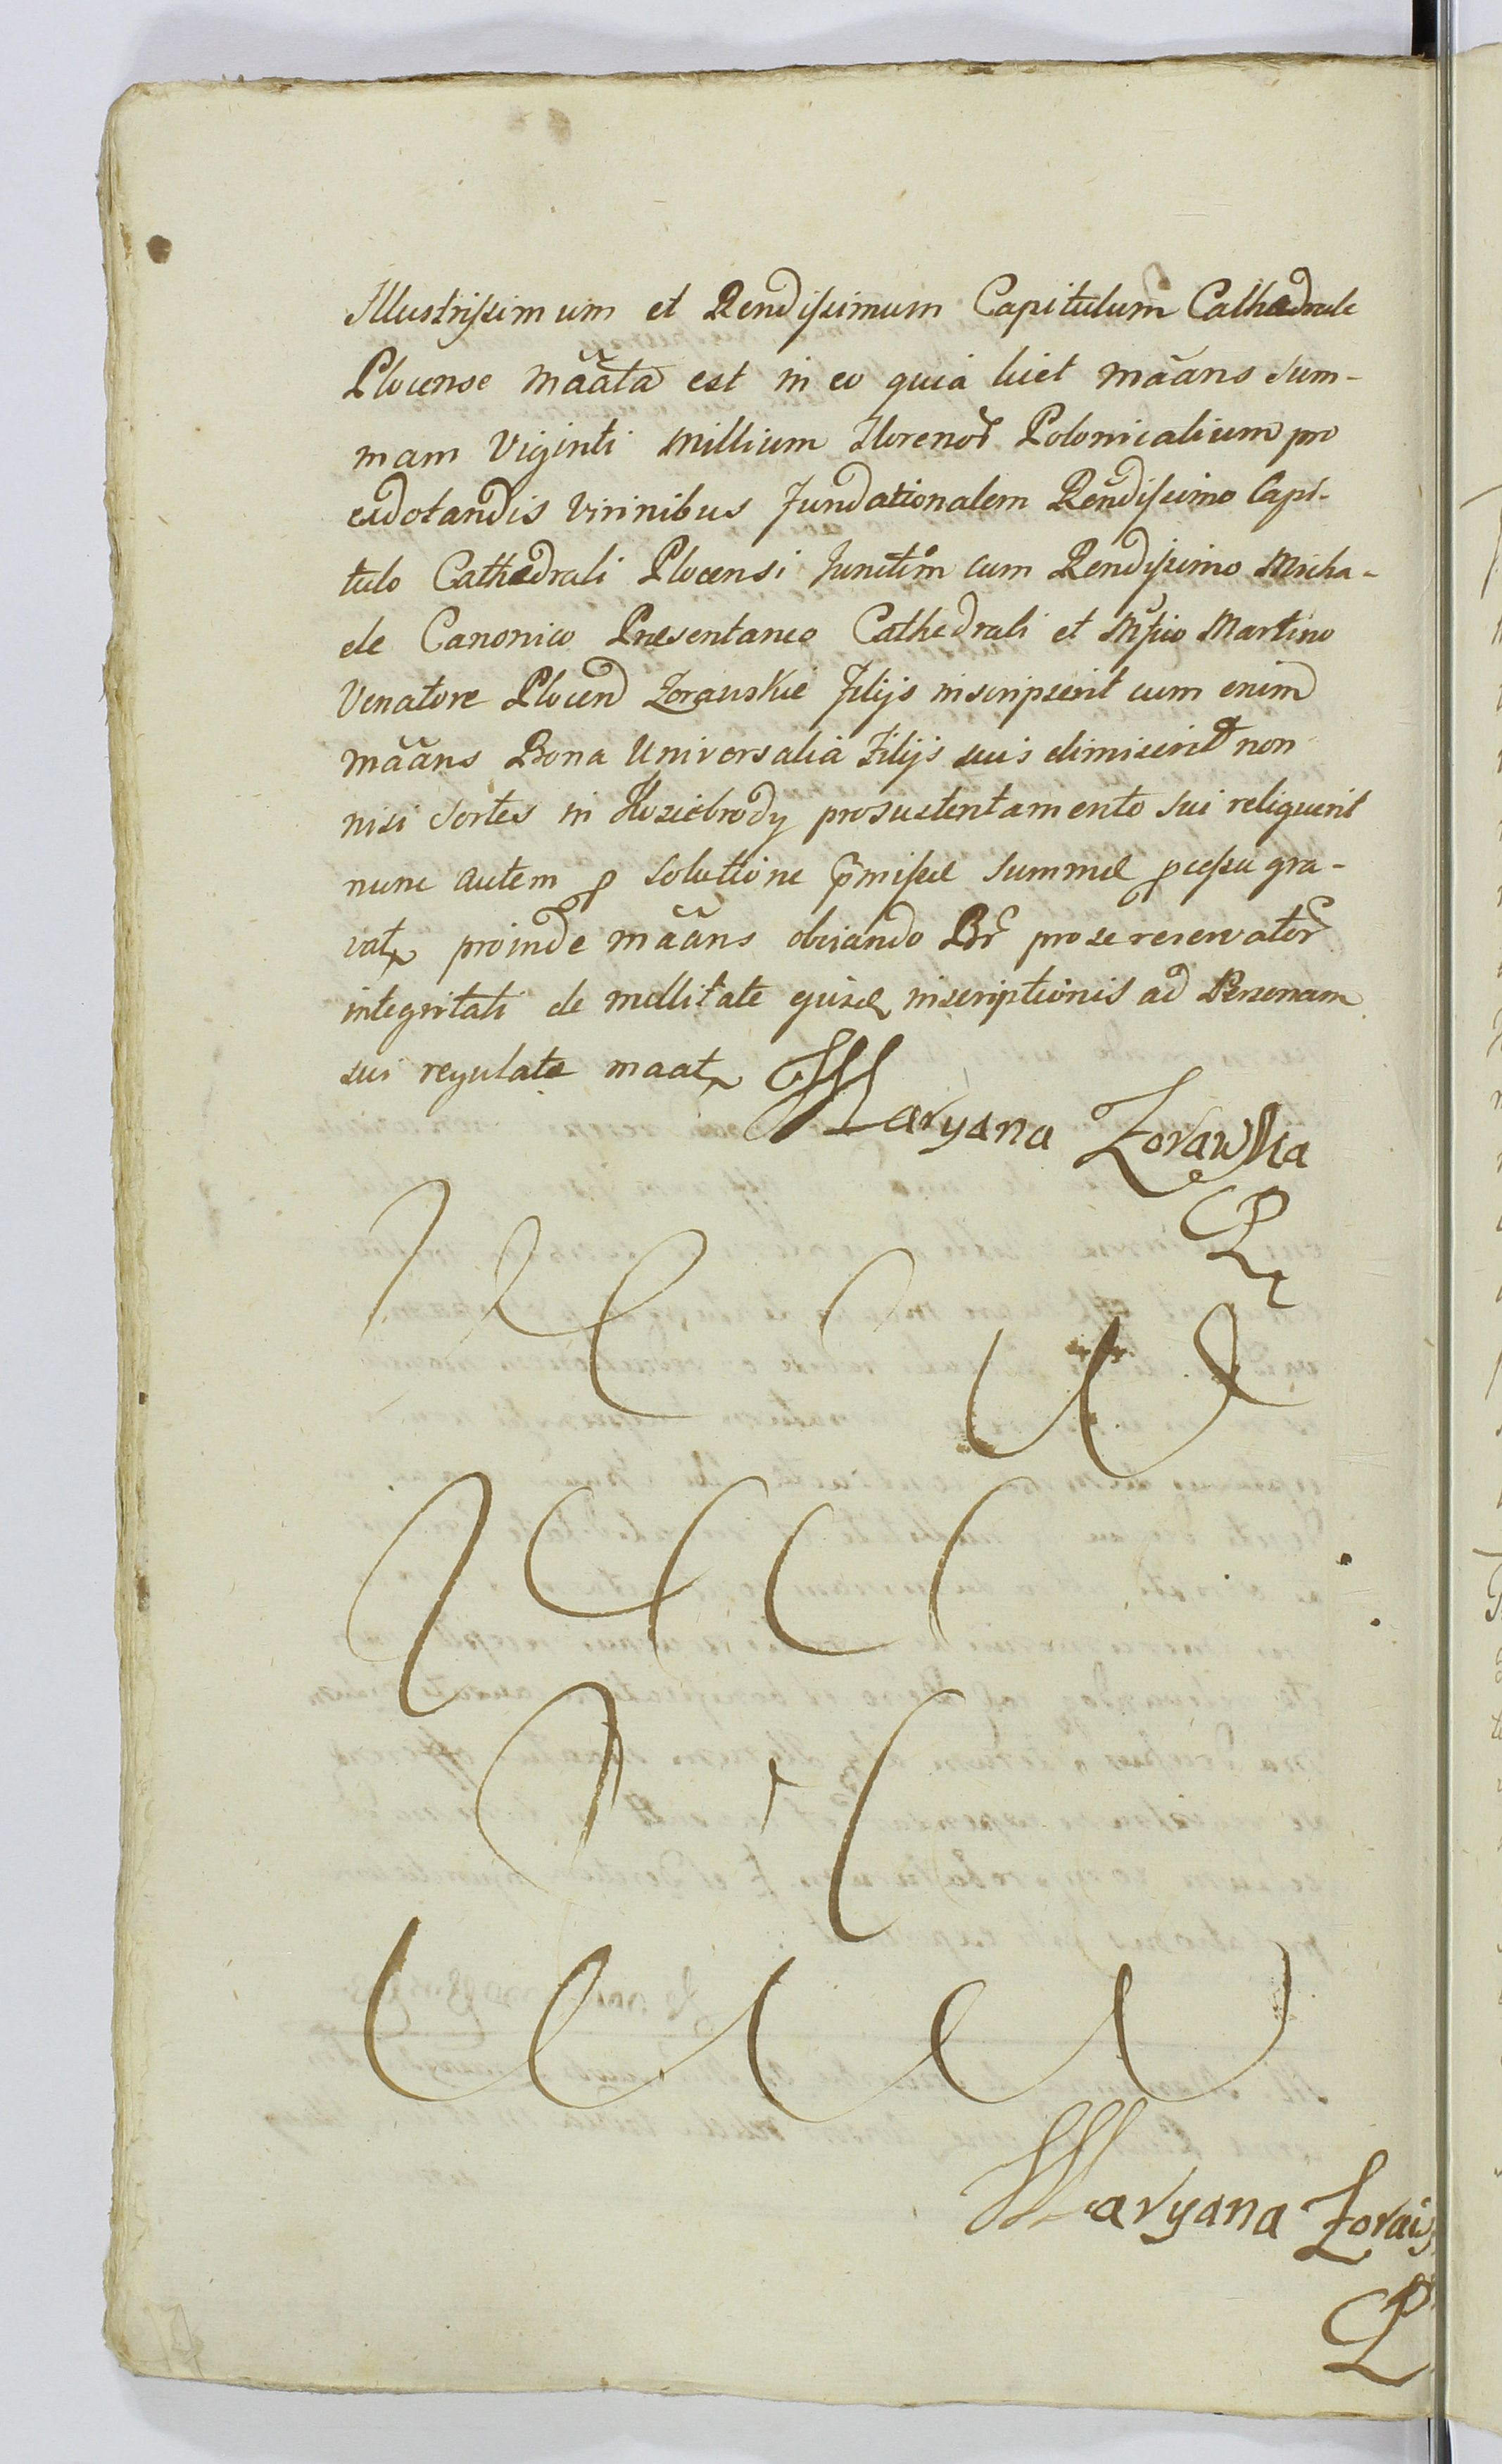 Illustrissimum et Rendissimum Capitulum Cathedrale
Plocense mããta est in eo quia licet mããns Sum-
mam Viginti Millium Florenor Polonicalium pro
exdotandis Virinibus Fundationalem Rendissimo Capi-
tulo Cathedrali Plocensi Junctim cum Rendissimo Micha-
ele Canonico Præsentaneo Cathedrali et Mfico Martino
Venatore Plocen Zorawskie Filijs inscripserit cum enim
mããns Bona Universalia Filijs suis dimiserit non
nisi Sortes in Koziebrody pro sustentamento sui reliquerit
nunc autem p solutione pmissæ Summæ pcessu gra-
vat proinde mããns obviando Br pro se reservator
integritati de nullitate ejusd inscriptionis ad Personam
sui regulate maat
Maryana Zorawska
Maryana Zoraw